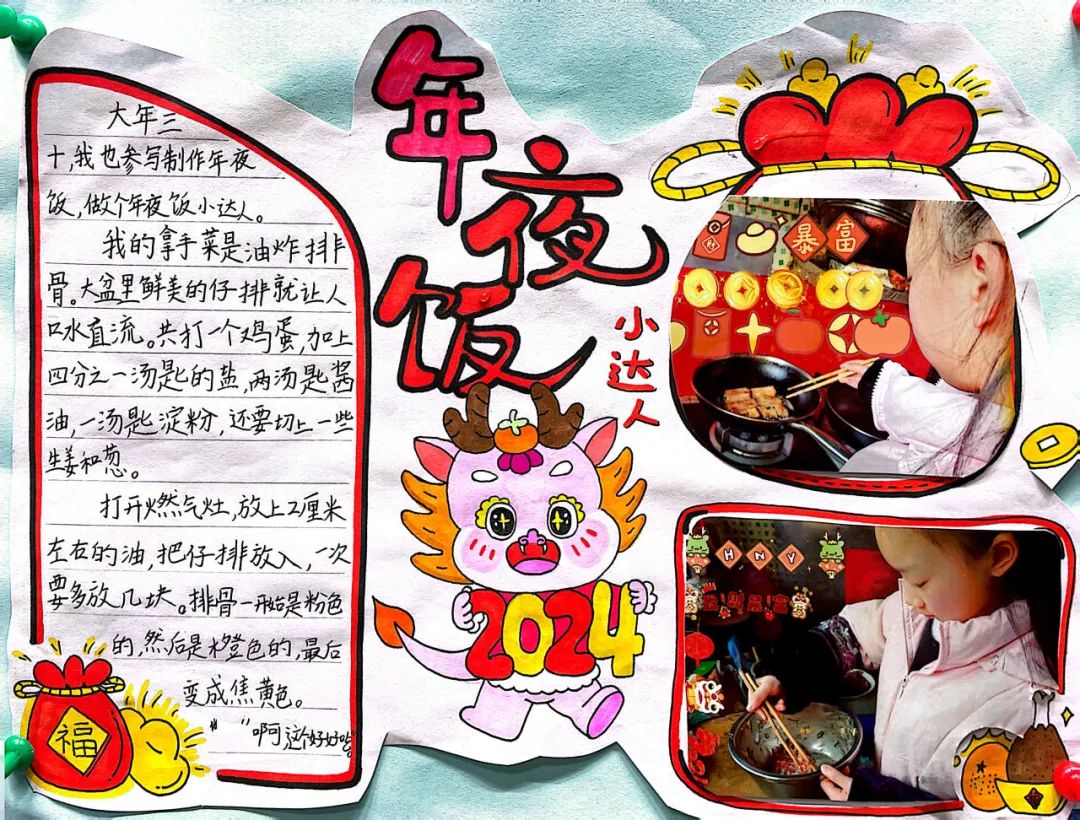 大年三
十,我也参写制作年夜
饭,做个年夜饭小达人。
我的拿手菜是油炸排
骨。大盆里鲜美的仔排就让人
口水直流。共打一个鸡蛋,加上
四分之一汤匙的盐,两汤匙酱
油,一汤匙淀粉,还要切上一些
生姜和葱。
打开燃气灶,放上2厘米
左右的油,把仔排放入,一次
要多放几块。排骨一般是粉色
的,然后是橙色的,最后
变成焦黄色。
“ ”啊这个好好吃。
福
年夜饭
小达人
2024
暴富
HNY